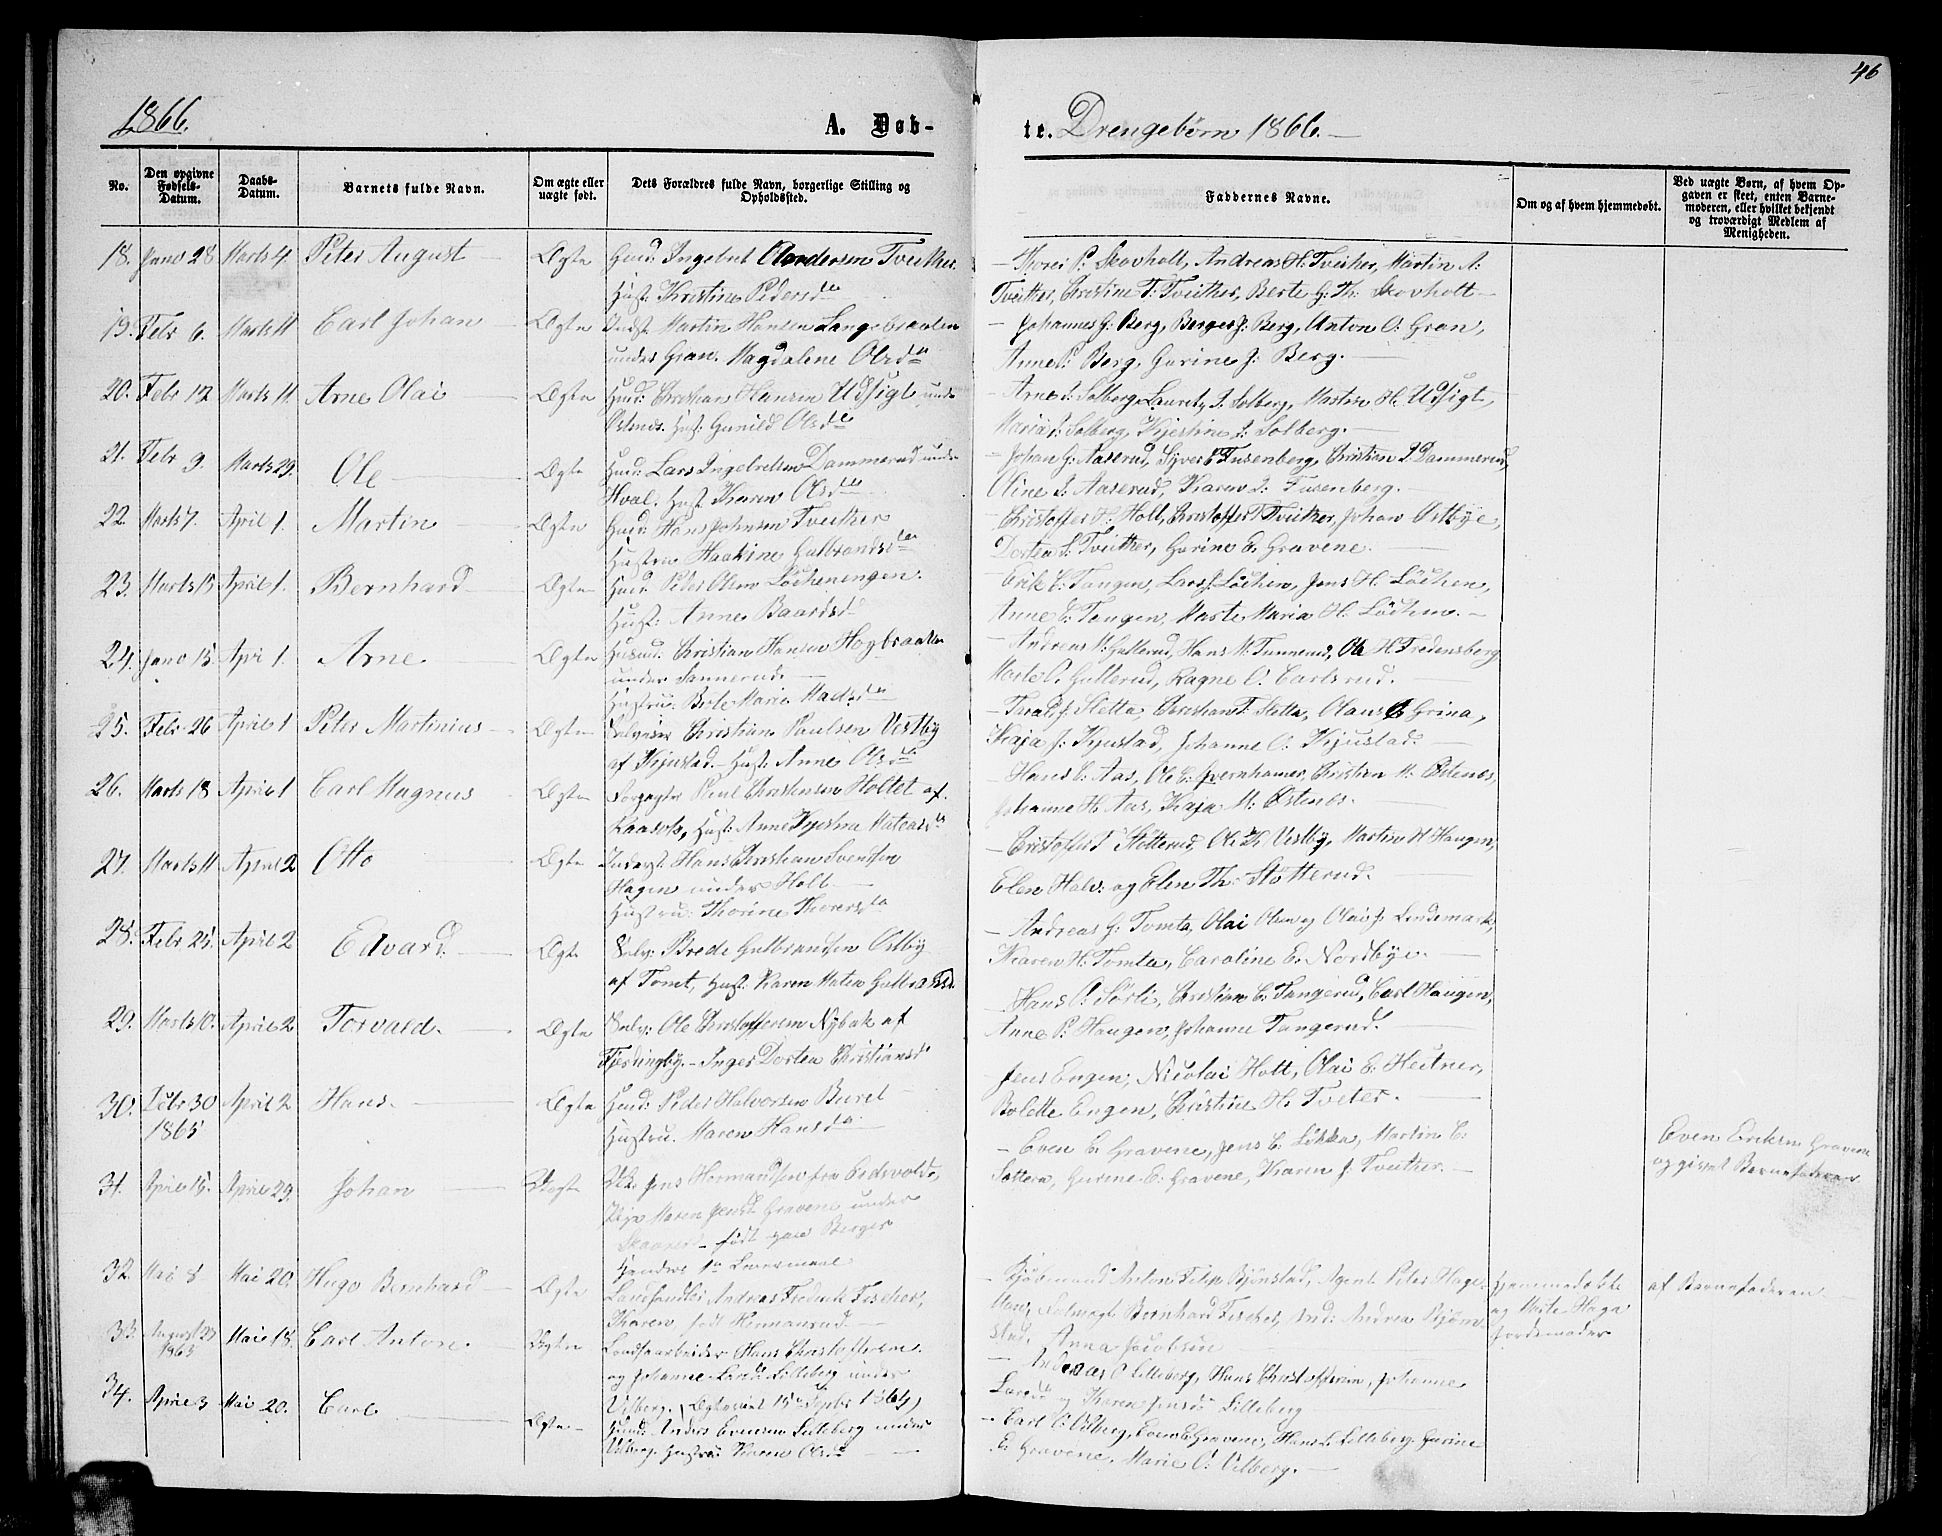 46
1866.
A. Døb-
te. Drengebørn 1866.
No.
Den opgivne Fødsels-Datum.
Daabs-Datum.
Barnets fulde Navn.
Om ægte eller uægte født.
Dets Forældres fulde Navn, borgerlige Stilling og Opholdssted.
Faddernes Navne.
Om og af hvem hjemmedøbt.
Ved uægte Børn, af hvem Opgaven er skeet, enten Barnemoderen, eller hvilket bekjendt og troværdigt Medlem af Menigheden.
18. Janr 28 Marts 4. Peter August Ægte Huusm: Ingebret Andersen Tveither.
Hust: Kristine Pedersd
Thorer P. Skovholt, Andreas H. Tveither, Martin A.
Tveither, Christine T. Tveither, Berte G. Th. Skovholt
19. Febr 6. Marts 11 Carl Johan Ægte Indst Martin Hansen Langebraaten
under Gran. Magdalene Olsd
Johannes G. Berg, Berger J. Berg, Anton O. Gran,
Anne P. Berg, Gurine J. Berg.
20. Febr 12 Marts 11. Arne Olai Ægte Huusm: Christian Hansen Udsigt under
Østnes. Hust: Gunild Olsd
Arne I. Solberg, Lauretz I. Solberg, Martin H. Udsigt,
Maria I. Solberg, Kjestine I. Solberg.
21. Febr 9. Marts 29. Ole Ægte Huusm: Lars Ingebretsen Dammerud under
Hval. Hust Karen Olsd
Johan G. Aaserud, Syver E Fusenberg, Christian I. Dammerud,
Oline I. Aaserud, Karen I. Fusenberg.
22. Marts 7. April 1. Martin Ægte Huusm: Hans Johnsen Tveither
Hustru Haakine Gulbrandsd
Christoffer H. Holt, Christoffer I Tveither, Johan Østbye,
Dortea I. Tveither, Gurine E. Gravene.
23. Marts 15 April 1. Bernhard Ægte Huusm: Peder Olsen Löcheneengen.
Hust: Anne Baardsd
Erik E. Tangen, Lars J. Löchen, Jens H. Löchen,
Anne E. Tangen, Marte Maria H. Löchen.
24. Janr 15. Apr 1. Arne Ægte Huusm: Christian Hansen Hogbraaten
under Sannerud.
Hustru: Berte Marie Madsd
Andreas M. Gutterud, Hans M. Tunnerud, Ole H. Fredensberg
Marte O. Gutterud, Ragne O. Carlsrud.
25. Febr 26 April 1 Peter Martinius Ægte Selveier Christian Paulsen Vestby
af Kjustad. Hust: Anne Olsd
Christian T. Sletta, Olaus Grina,
Kaja J. Kjustad, Johanne O. Kjustad.
26. Marts 18 April 1 Carl Magnus Ægte Forpagter Paul Christensen Holtet af
Hust: Anne Kjestine
Hans E. Aas, Ole E. Christian M. Østnes,
Johanne H. Aas, Kaja M. Østnes.
27. Marts 11 April 2 Otto Ægte Inderst Hans Christian Svendsen
Hagen under Holt
Hustru: Thorine Thorersd
Christoffer T Støtterud, Ole Vestby, Martin H Haugen,
Elen Halv. og Elen Th. Støtterud.
28. Febr 25. April 2 Edvard. Ægte Selv: Brede Gulbrandsen Ostby
af Tomt, Hust: Karen Maten
Andreas G. Tomta, Olai Olsen og Olai J. Lindemark,
Karen H. Tomta, Caroline E. Nordbye.
29. Marts 10. April 2 Torvald. Ægte Selv: Ole Christoffersen Nybak af
Fjerdingby. Inger Dortea Christiansd
Hans O. Sørli, Christian E. Tangerud, Carl Haugen,
Anne P. Haugen, Johanne Tangerud.
30. 30 1865 April 2 Hans. Ægte Huusm: Peder Halvorsen Buret
Hustru. Maren Hansd
Jens Engen, Nicolai Holt, Olai E. Heitner,
Bolette Engen, Christine H. Tveter.
31. April 15. April 29. Johan Uægte Jens Hermandsen fra Eidsvold,
Pige Maren Jensd Gravene under
født paa Berger
Even E. Gravene, Jens E. Løkken, Martin E.
Sottern, Gurine E. Gravene, Karen J. Tveither.
Even Eriksen Gravene
opgivet Barnefaderen
32. Mai 8 Mai 20. Hugo Bernhard Ægte Landhandler Andreas Fredrik Fischer,
Karen født Hermansrud.
Kjøbmand Anton Bjørnstad, Agent Peter Hage-
Bernhard Fischer, Andrea Bjørn-
stad, Anna Jacobsen
Hjemmedøbte
og Marte Haga
Jordemoder
af Barnefaderen
33. August 23 1865 Mai 18. Carl Anton. Uægte Landsarbeider Hans Christoffersen.
og Johanne Larsd Lilleberg under
Vilberg.
Andreas O Lilleberg, Hans Christoffersen, Johanne
Larsd og Karen Jensd Lilleberg
34. April 3 Mai 20. Carl Ægte Huusm: Anders Evensen Lilleberg under
Vilberg. Hustru: Karen Olsd
Carl O. Vilberg, Even E. Gravene, Hans L. Lilleberg. Gurine
E. Gravene. Marie O. Vilberg.